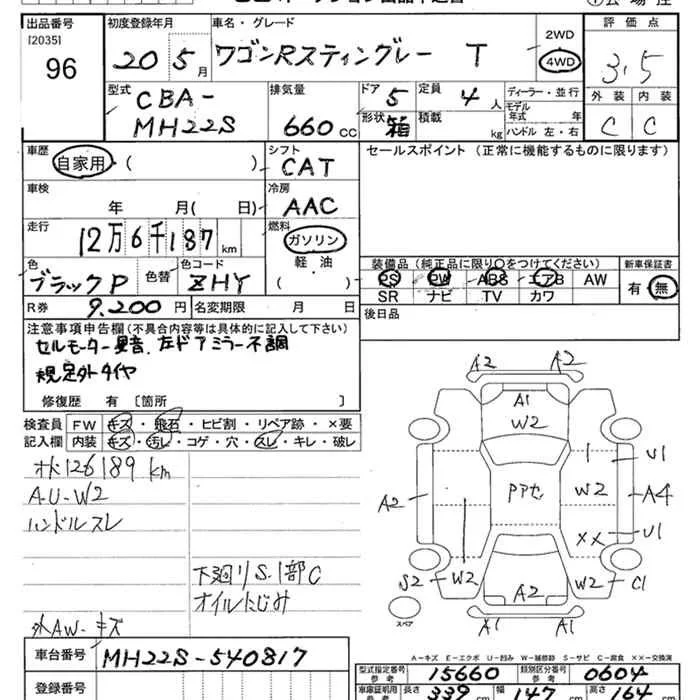 出品番号 初度登録年月 車名・グレード 2WD 評価点
[2035] 96 20 5月 ワゴンRスティングレー T 4WD 3.5
型式 CBA- 排気量 ドア 5 定員 4人 ディーラー・並行 外装 内装
MH22S 660 CC 形状 箱 積載 kg モデル年式 年 ハンドル 左・右 C C
車歴 シフト セールスポイント(正常に機能するものに限ります)
自家用 ( ) CAT
車検 冷房
年 月( 日) AAC
走行 燃料
12万6千187km ガソリン
色 色替 色コード 軽・油 装備品(純正品に限り○をつけてください) 新車保証書
ブラックP ZHY ( ) PS PW ABS エアB AW 有・無
SR ナビ TV カワ
R券 9,200円 名変期限 月 日 後日品
注意事項申告欄(不具合内容等は具体的に記入して下さい)
セルモーター異音、左ドアミラー不調
規定外タイヤ
修復歴 有 [箇所 ]
検査員 FW キズ・飛石・ヒビ割・リペア跡・×要
記入欄 内装 キズ・汚レ・コゲ・穴・スレ・キレ・破レ
オド126189km
A-U-W2
ハンドルスレ
下廻りS.1部C
オイルにじみ
外AW-キズ
A2 A2
A1
W2
U1
A2 PアセW2 A4
×× U1
S2 W2 A2 W2 C1
スペア A1 A1
A-キズ E-エクボ U-凹み W-補修跡 S-サビ C-腐食 ××-交換済
車台番号 MH22S-540817
登録番号
型式指定番号 参考 15660 類別区分番号 参考 0604
車庫証明用 参考 長さ 339cm 幅 147cm 高さ 164cm